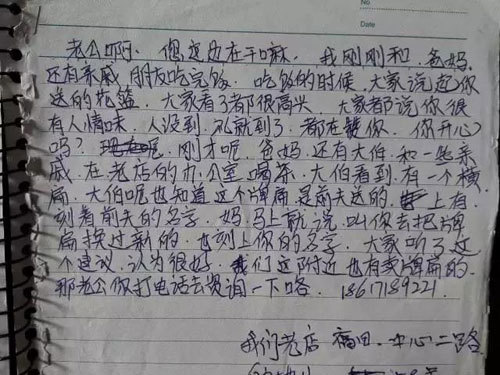 No
Date
老公啊, 您这边在干嘛, 我刚刚和, 爸妈,
还有亲戚 朋友吃完饭, 吃饭的时候, 大家说起你
送的花篮, 大家看了都很高兴, 大家都说你很
有人情味, 人没到 礼就到了, 都在 你, 你开心
吗? 刚才呢, 爸妈还有大伯, 和一些亲
戚, 在老店的办公室喝茶, 大伯看到, 有一个横
扁, 大伯呢也知道 这个牌扁 是前夫送的, 上有
刻着前夫的名字, 妈马上就说, 叫你去把牌
扁换过新的, 也刻上你的名字, 大家听了这
个建议, 认为很好, 我们这附近也有卖牌扁的,
那老公你打电话去 询一下咯, 18617189221.
我们老店 福田, 中心二路